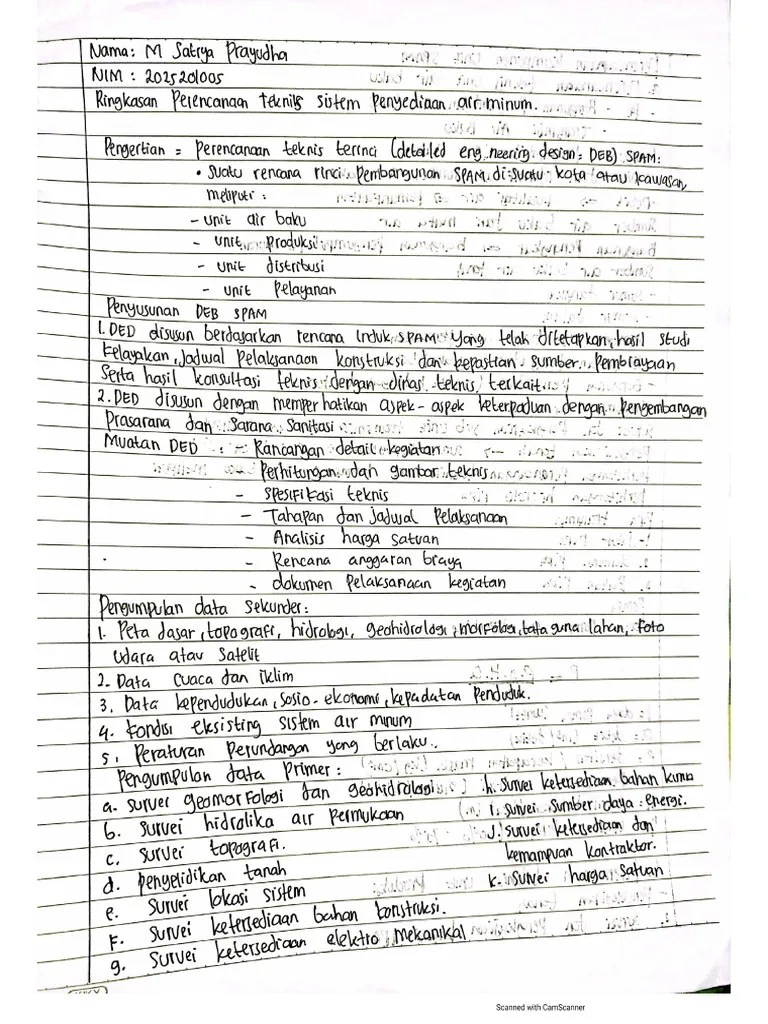 Nama: M Satrya Prayudha
NIM : 2025201005
Ringkasan Perencanaan teknis sistem penyediaan air minum.
Pengertian = Perencanaan teknis terinci (detailed engineering design: DEB) SPAM:
• suatu rencana rinci pembangunan SPAM di suatu kota atau kawasan,
meliputi :
- unit air baku
- unit produksi
- unit distribusi
- unit pelayanan
Penyusunan DEB SPAM
1. DED disusun berdasarkan rencana Induk SPAM yang telah ditetapkan, hasil studi
kelayakan, jadwal pelaksanaan konstruksi dan kepastian sumber pembiayaan
Serta hasil konsultasi teknis dengan dinas teknis terkait.
2. DED disusun dengan memperhatikan aspek-aspek keterpaduan dengan pengembangan
Prasarana dan Sarana Sanitasi
Muatan DED : - Rancangan detail kegiatan
- Perhitungan dan gambar teknis
- spesifikasi teknis
- Tahapan dan jadwal pelaksanaan
- Analisis harga satuan
- Rencana anggaran biaya
- dokumen pelaksanaan kegiatan
Pengumpulan data sekunder:
1. Peta dasar, topografi, hidrologi, geohidrologi, morfologi, tata guna lahan, foto
udara atau Satelit
2. Data cuaca dan iklim
3. Data kependudukan, sosio-ekonomi, kepadatan penduduk.
4. kondisi eksisting sistem air minum
5. Peraturan Perundangan yang berlaku.
Pengumpulan data Primer :
a. survei geomorfologi dan geohidrologi
b. survei hidrolika air permukaan
c. survei topografi.
d. penyelidikan tanah
e. survei lokasi sistem
F. survei ketersediaan bahan konstruksi.
g. survei ketersediaan elektro mekanikal
h. survei ketersediaan bahan kimia
i. survei sumber daya energi.
J. survei ketersediaan dan
kemampuan kontraktor.
k. survei harga satuan
Scanned with CamScanner